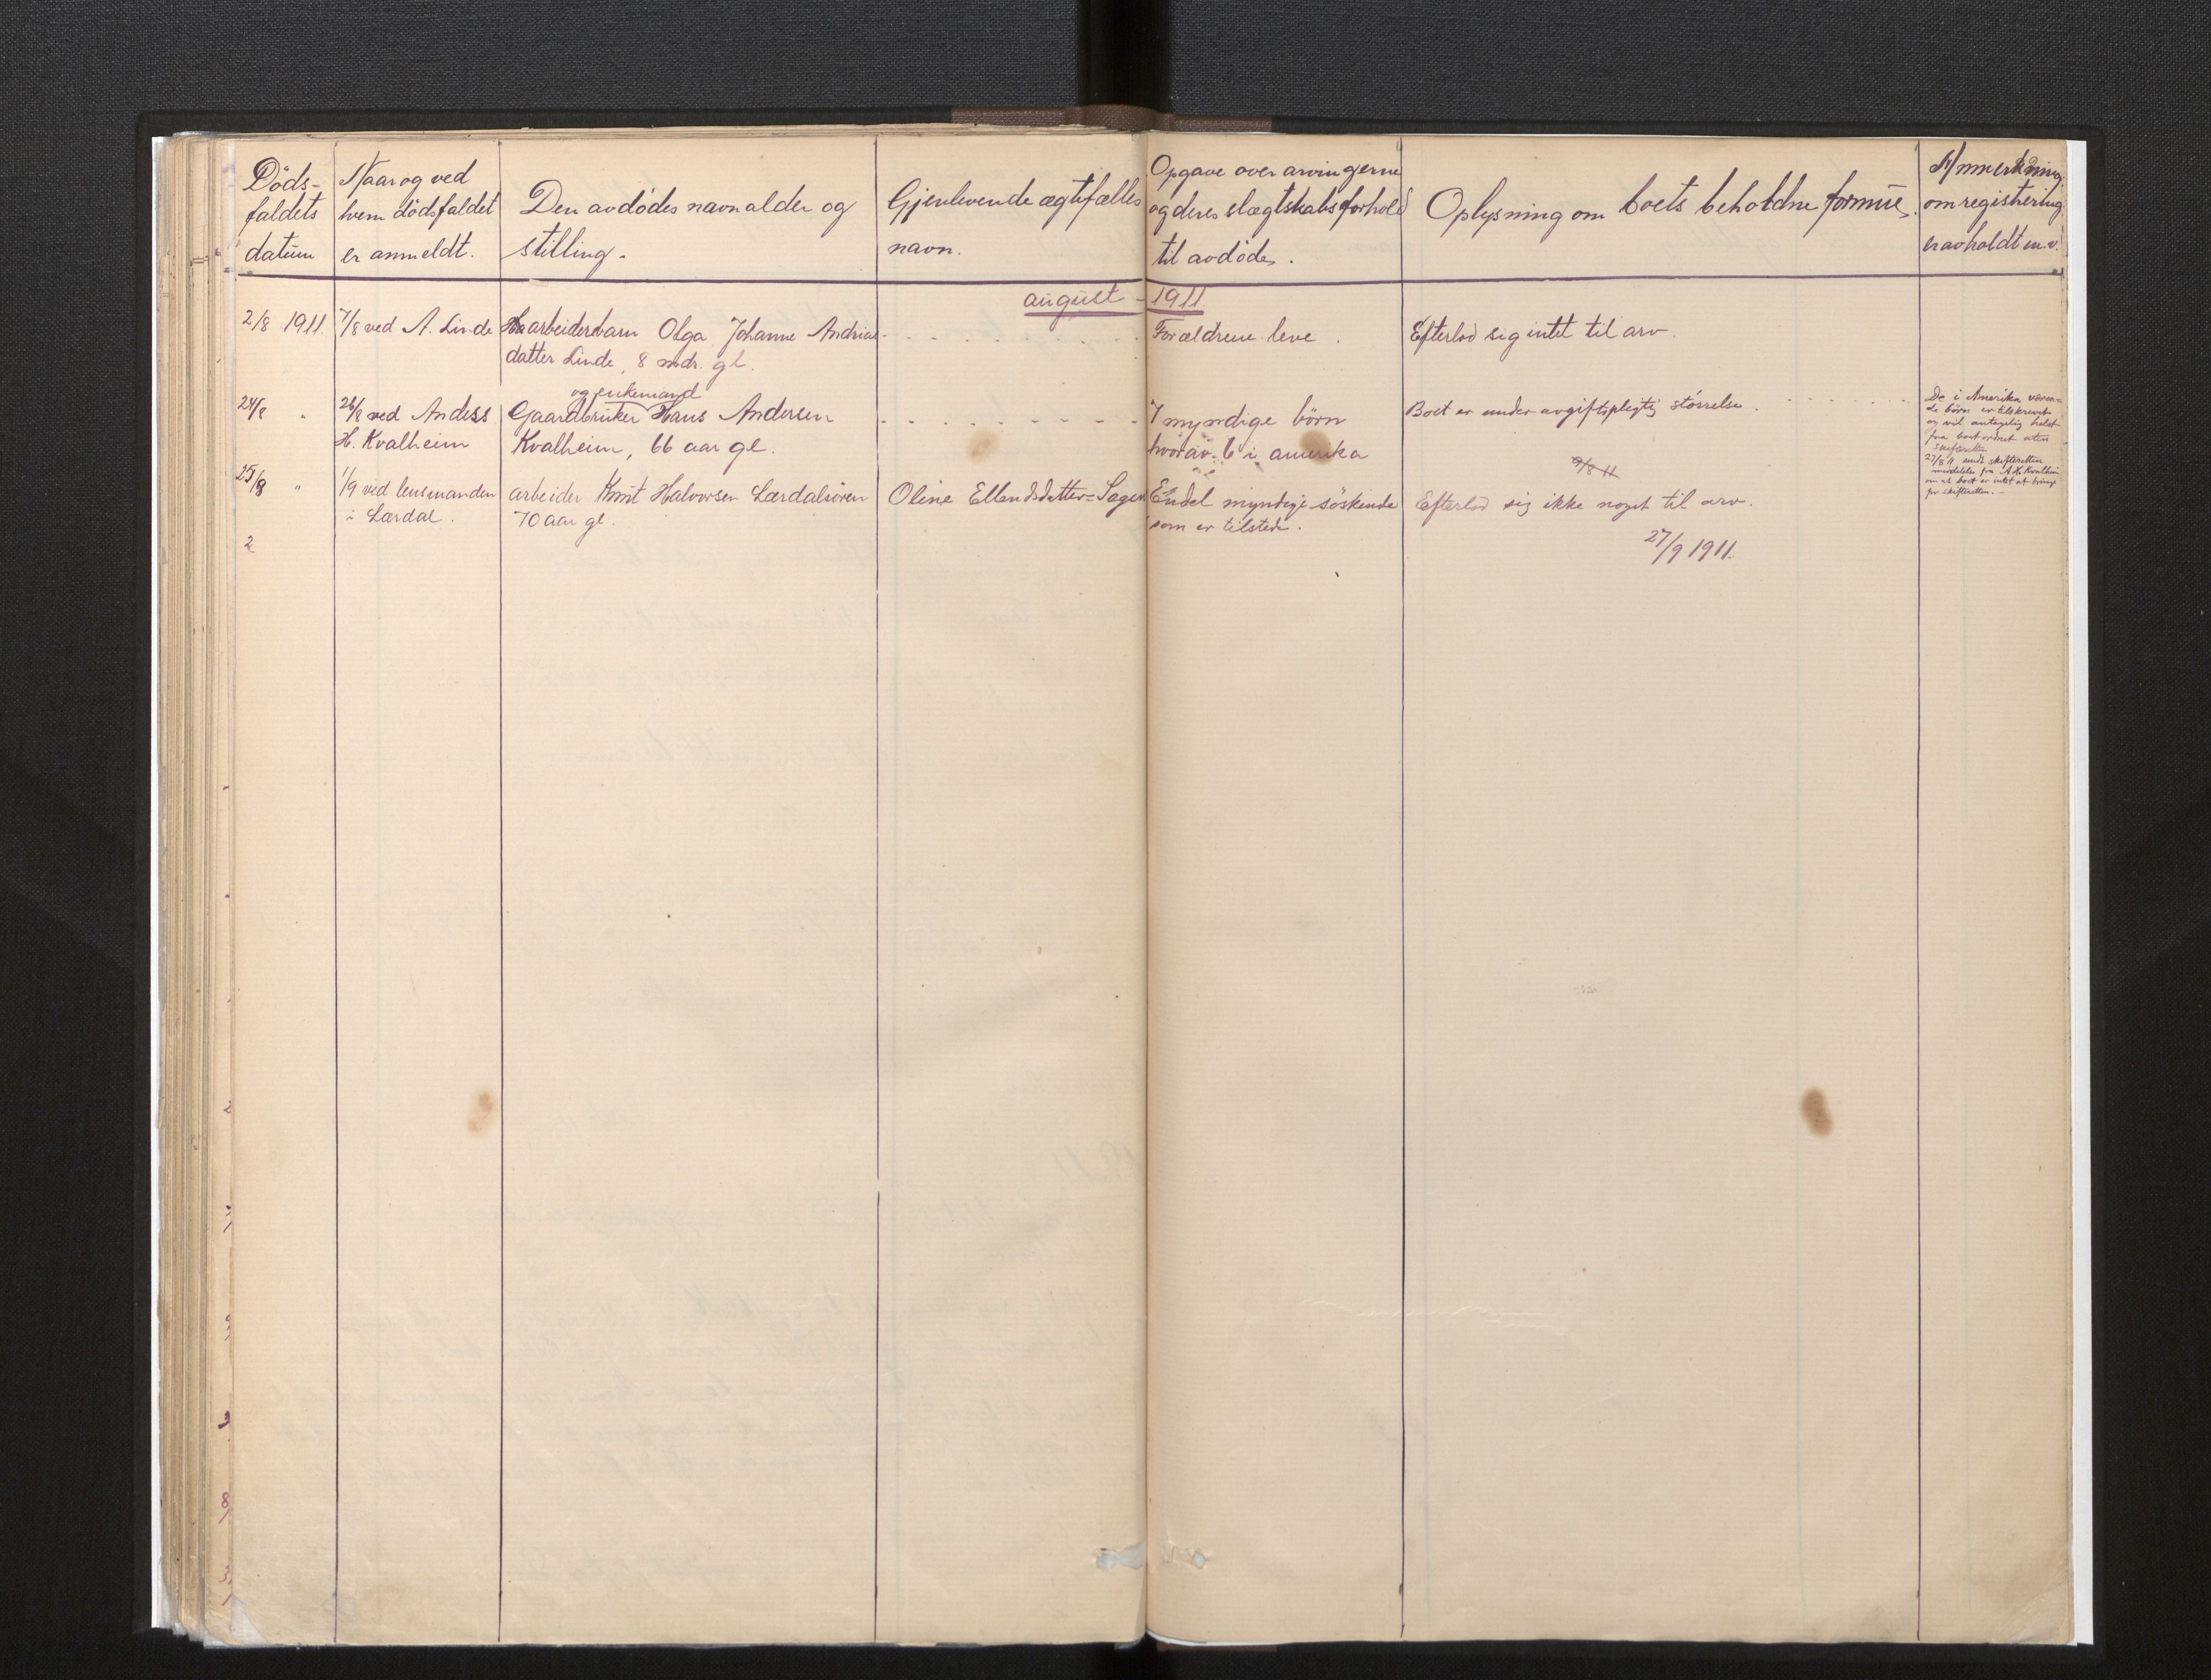 Döds-
faldets
datum
Naar og ved
hvem dödsfaldet
er anmeldt.
Den avdödes navn alder og
stilling.
Gjenlevende ægtefælles
navn.
Opgave over arvingerne
og deres slægtskabsforhold
til avdöde.
Oplysning om boets beholdne formue.
Anmerkning
om registrering
er avholdt m.v.
august - 1911
2/8 1911
7/8 ved A. Linde
arbeidersbarn Olga Johanne Andrias-
datter Linde, 8 mdr. gl.
Forældrene leve.
Efterlod sig intet til arv.
24/8 "
26/8 ved Anders
H. Kvalheim
og enkemand
Gaardbruker Hans Andersen
Kvalheim, 66 aar gl.
7 myndige börn
hvorav 6 i amerika
Boet er under avgiftspligtig störrelse.
De i Amerika væren-
de börn er tilskrevet
og vil antagelig helst
faa boet ordnet uten
skifteretten
27/8 11 sendt skifteretten
meddelelse fra A. H. Kvalheim
om at boet er intet at bringe
for skifteretten. -
25/8 "
1/9 ved lensmanden
i Lærdal.
arbeider Knut Halvorsen Lærdalsören
70 aar gl.
Oline Ellendsdatter = Sagen
Endel myndige söskende
som er tilstede.
Efterlod sig ikke noget til arv.
27/9 1911.
2